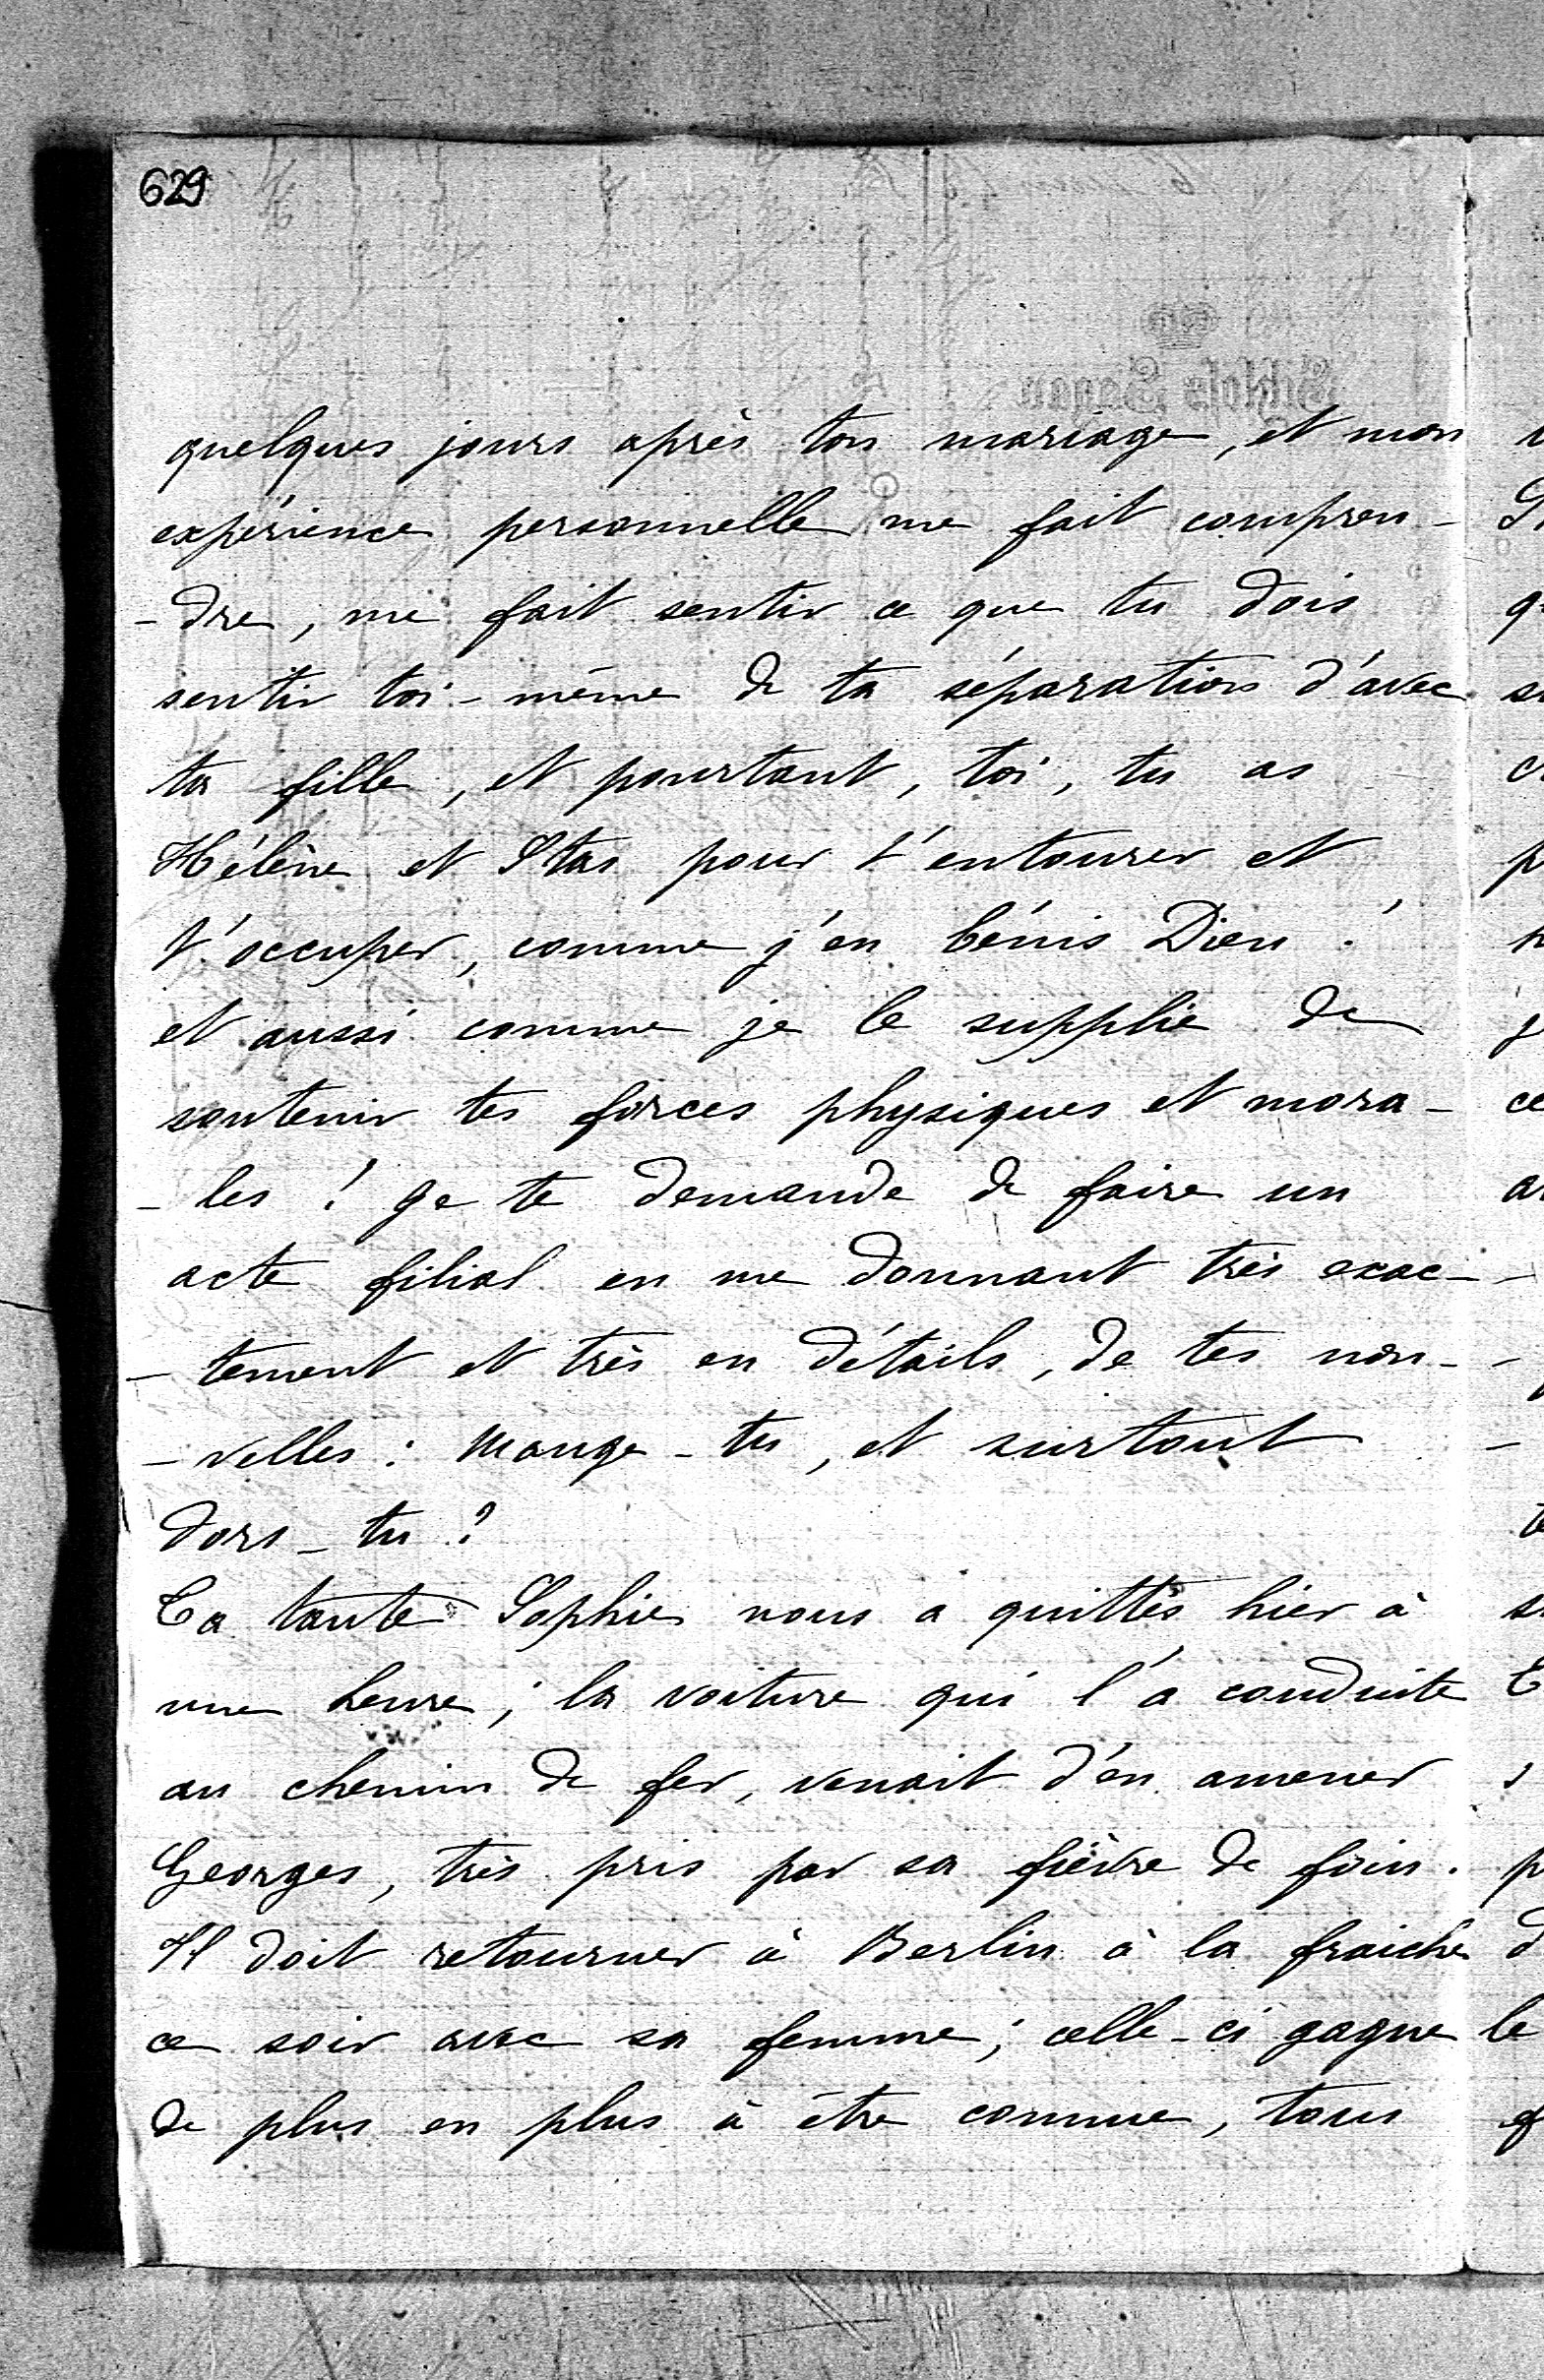 629
quelques jours après ton mariage, et mon
expérience personnelle me fait compren-
-dre, me fait sentir ce que tu dois
sentir toi-même de ta séparation d'avec
ta fille, et pourtant, toi, tu as
Hélène et Stas pour t'entourer et
t'occuper, comme j'en bénis Dieu !
et aussi comme je le supplie de
soutenir tes forces physiques et mora-
-les ! Je te demande de faire un
acte filial en me donnant très exac-
-tement et très en détails, de tes nou-
-velles : Mange-tu, et surtout
dors-tu ?
Ta tante Sophie nous a quittés hier à
une heure ; la voiture qui l'a conduite
au chemin de fer, venait d'en amener
Georges, très pris par sa fièvre de foin.
Il doit retourner à Berlin à la fraiche
ce soir avec sa femme ; celle-ci gagne
de plus en plus à être connue, tous